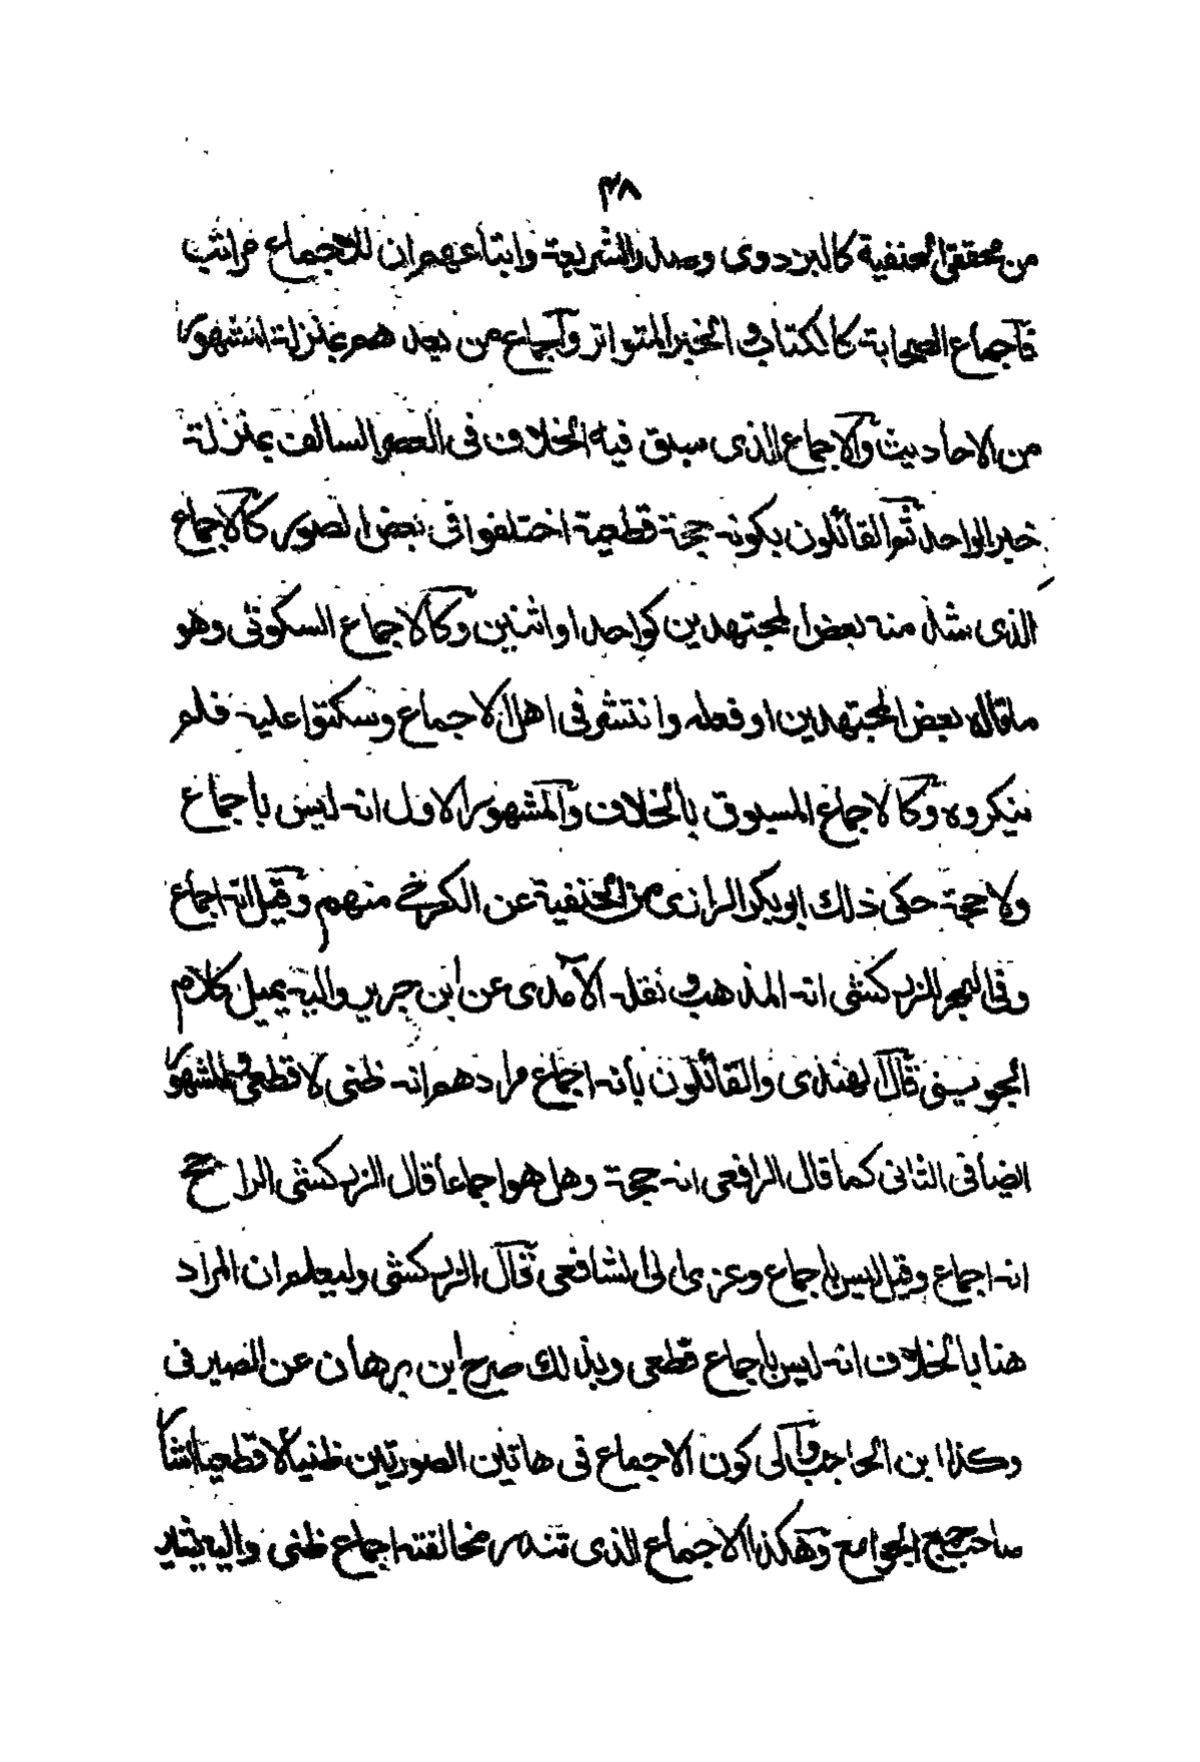 ٣٨
من محققى الحنفية كالبزدوى وصدر الشريعة واتباعهم ان للاجماع مراتب
فاجماع الصحابة كالكتاب والخبر المتواتر واجماع من بعدهم بمنزلة المشهور
من الاحاديث والاجماع الذى سبق فيه الخلاف فى العصر السالف بمنزلة
خبر الواحد ثم القائلون بكونه حجة قطعية اختلفوا فى بعض الصور كالاجماع
الذى شذ منه بعض المجتهدين كواحد او اثنين وكالاجماع السكوتى وهو
ما قاله بعض المجتهدين او فعله وانتشر فى اهل الاجماع وسكتوا عليه فلم
ينكروه وكالاجماع المسبوق بالخلاف والمشهور الاول انه ليس باجماع
ولا حجة حكى ذلك ابو بكر الرازى من الحنفية عن الكرخى منهم وقيل انه اجماع
وفى البحر للزركشى انه المذهب ونقله الآمدى عن ابن جرير واليه يميل كلام
الجوينى قال الهندى والقائلون بأنه اجماع مرادهم انه ظنى لا قطعى والمشهور
ايضا فى الثانى كما قال الرافعى انه حجة وهل هو اجماع قال الزركشى الراجح
انه اجماع وقيل ليس باجماع وعزى الى الشافعى قال الزركشى وليعلم ان المراد
هنا بالخلاف انه ليس باجماع قطعى وبذلك صرح ابن برهان عن الصيرفى
وكذا ابن الحاجب والى كون الاجماع فى هاتين الصورتين ظنيا لا قطعيا اشار
صاحب جمع الجوامع وهكذا الاجماع الذى تندر مخالفته اجماع ظنى واليه يشير